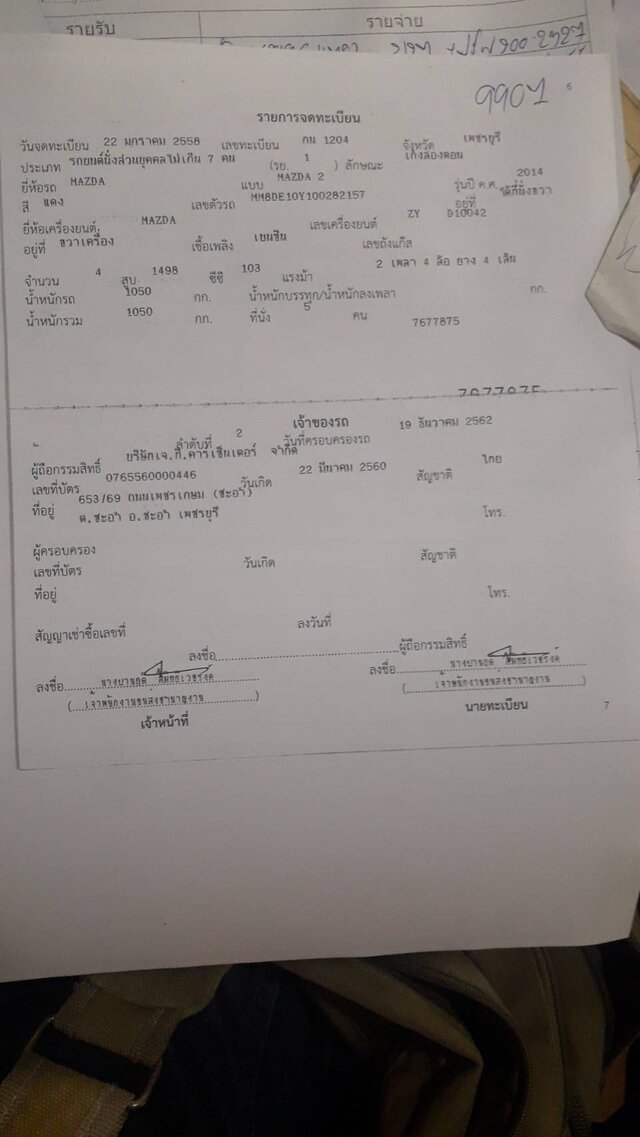 รายรับ รายจ่าย
9901 6
รายการจดทะเบียน
วันจดทะเบียน 22 มกราคม 2558 เลขทะเบียน กน 1204 จังหวัด เพชรบุรี
ประเภท รถยนต์นั่งส่วนบุคคลไม่เกิน 7 คน (รย. 1 ) ลักษณะ เก๋งสองตอน
ยี่ห้อรถ MAZDA แบบ MAZDA 2 รุ่นปี ค.ศ. 2014
สี แดง เลขตัวรถ MM8DE10Y100282157 อยู่ที่ ใต้ที่นั่งขวา
ยี่ห้อเครื่องยนต์ MAZDA เลขเครื่องยนต์ ZY D10042
อยู่ที่ ขวาเครื่อง เชื้อเพลิง เบนซิน เลขถังแก๊ส
จำนวน 4 สูบ 1498 ซีซี 103 แรงม้า 2 เพลา 4 ล้อ ยาง 4 เส้น
น้ำหนักรถ 1050 กก. น้ำหนักบรรทุก/น้ำหนักลงเพลา กก.
น้ำหนักรวม 1050 กก. ที่นั่ง 5 คน 7677875
เจ้าของรถ
ลำดับที่ 2 วันที่ครอบครองรถ 19 ธันวาคม 2562
ผู้ถือกรรมสิทธิ์ บริษัทเจ.ที.คาร์เซ็นเตอร์ จำกัด
เลขที่บัตร 0765560000446 วันเกิด 22 มีนาคม 2560 สัญชาติ ไทย
ที่อยู่ 653/69 ถนนเพชรเกษม (ชะอำ)
ต.ชะอำ อ.ชะอำ เพชรบุรี โทร.
ผู้ครอบครอง
เลขที่บัตร วันเกิด สัญชาติ
ที่อยู่ โทร.
สัญญาเช่าซื้อเลขที่ ลงวันที่
ลงชื่อ ผู้ถือกรรมสิทธิ์
ลงชื่อ ลงชื่อ
(เจ้าพนักงานขนส่งชำนาญงาน) (เจ้าพนักงานขนส่งชำนาญงาน)
เจ้าหน้าที่ นายทะเบียน 7